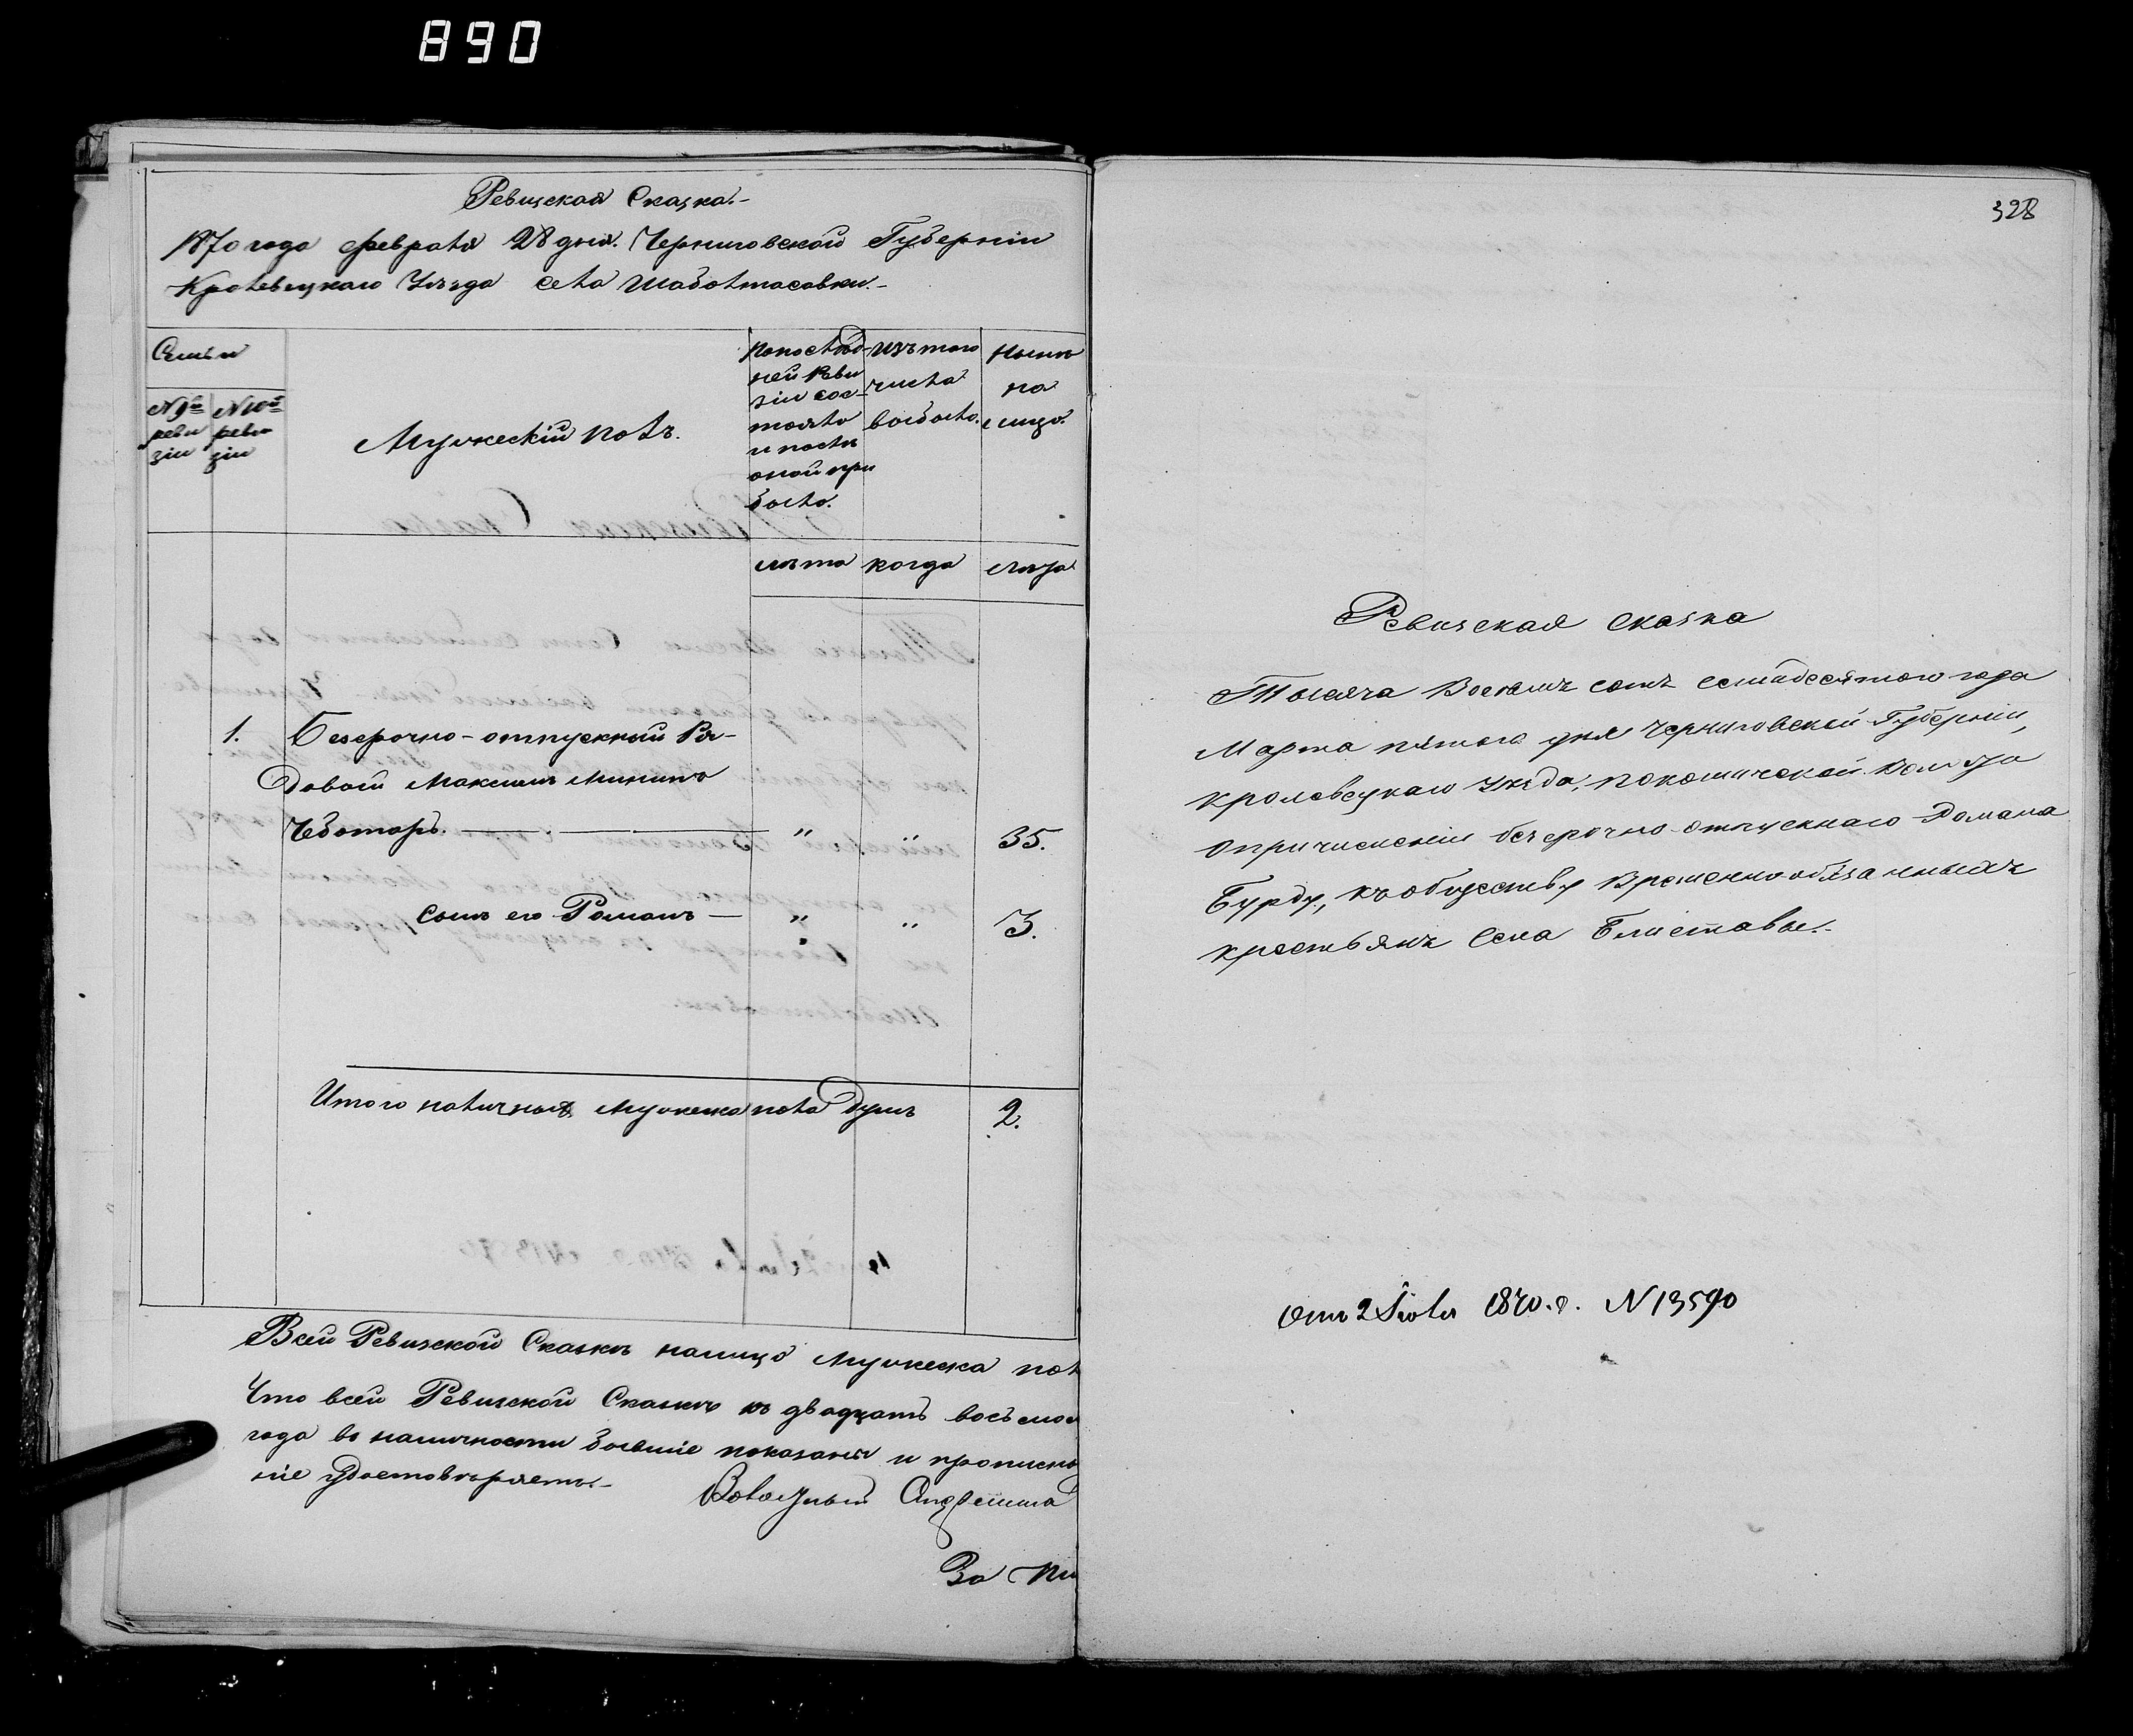 890
Ревизская Сказка.-
1870 года февраля 28 дня. Черниговской Губерніи
Кролевецкаго Уѣзда села Шаботасовки.-
Семьи
N 9й ревизіи
N 10й ревизіи
Мужескій полъ.
По послѣдней Ревизіи состояло и послѣ оной прибыло.
Изъ того числа выбыло.
Нынѣ на лицо.
лѣта когда лѣта
1. Безсрочно-отпускный Рядовой Максимъ Мининъ
Чеботарь. — " " 35.
Сынъ его Романъ — " " 3.
Итого наличныхъ мужеска пола душъ 2.
Всей Ревизской Сказкѣ налицо мужеска пол
Что всей Ревизской Сказкѣ къ двадцать восьмо
года въ наличности бывшіе показаны и прописны
ніе удостовѣряетъ.-
Волостный Старшина
За Пи
328
Ревизская сказка
Тысяча Восемь сотъ семидесятого года
Марта пятого дня Черниговской Губерніи,
Кролевецкаго Уѣзда, Покошичской Волости
о причисленіи безсрочно-отпускнаго Романа
Бурды, къ обществу временно обязанныхъ
крестьянъ Села Блистовы.-
Отн 2 Іюля 1870. г. N 13590